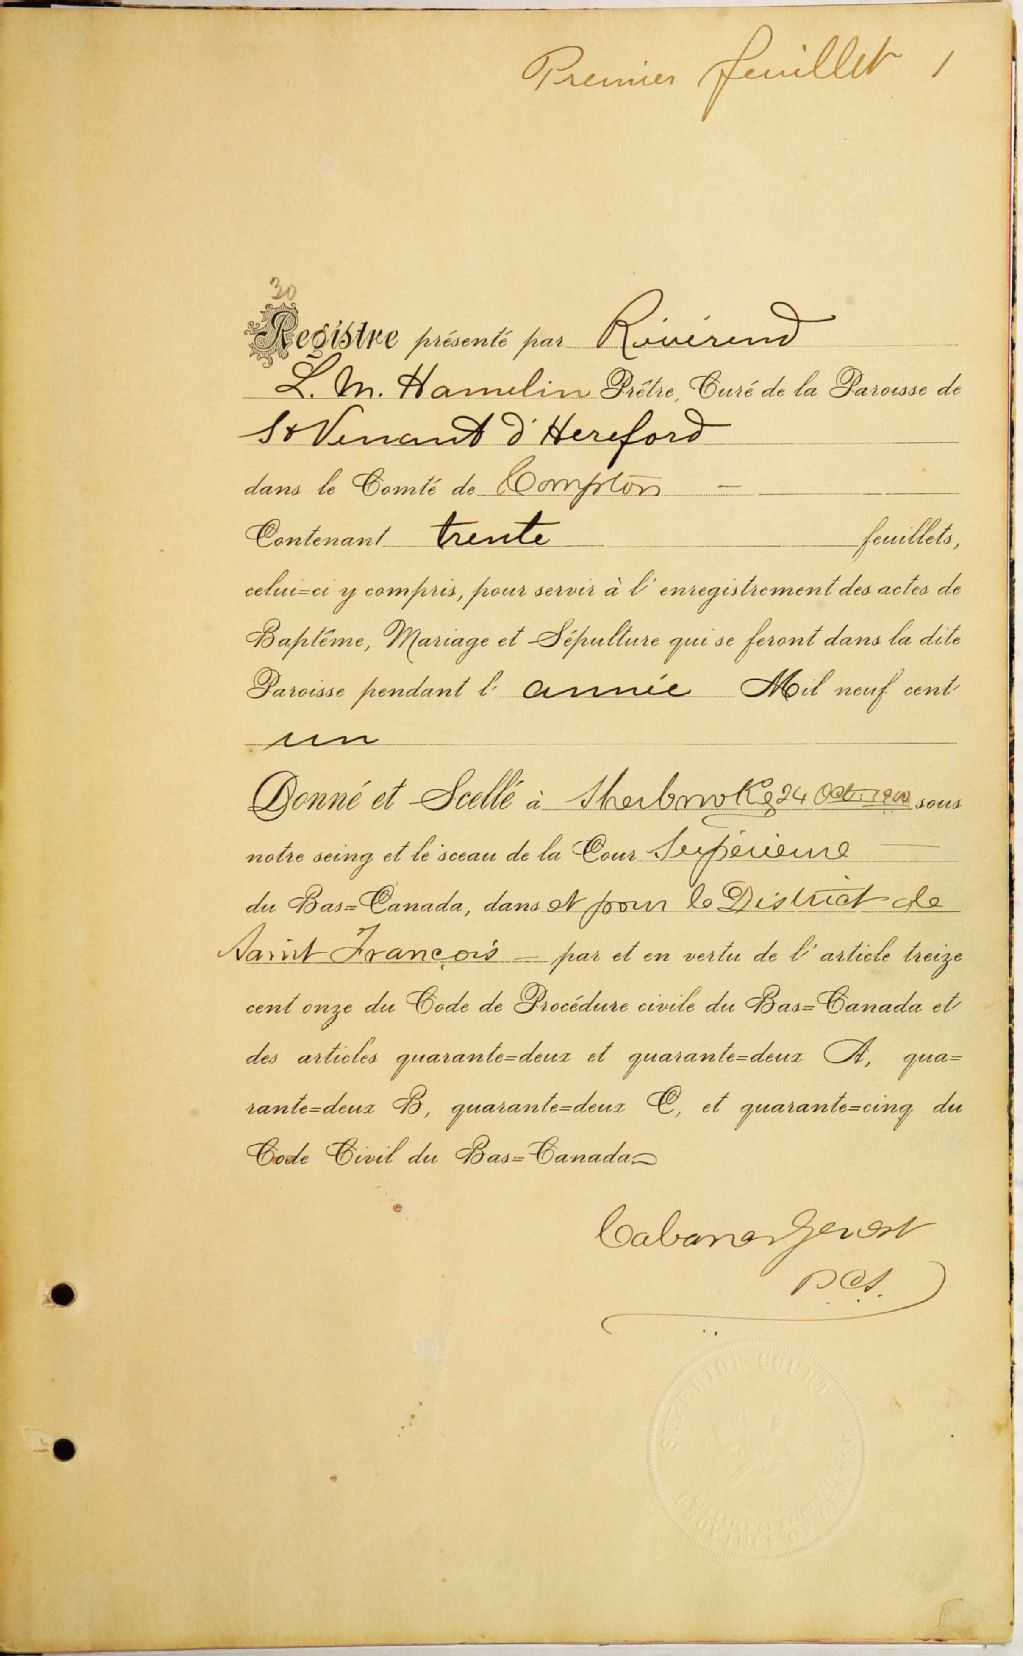 Premier feuillet 1
30
Registre présenté par Révérend
L. M. Hamelin Prêtre, Curé de la Paroisse de
St Venant d'Hereford
dans le Comté de Compton
Contenant trente feuillets,
celui=ci y compris, pour servir à l'enregistrement des actes de
Baptême, Mariage et Sépulture qui se feront dans la dite
Paroisse pendant l'année Mil neuf cent
un
Donné et Scellé à Sherbrooke 24 Oct. 1900 sous
notre seing et le sceau de la Cour Supérieure
du Bas=Canada, dans et pour le District de
Saint François — par et en vertu de l'article treize
cent onze du Code de Procédure civile du Bas=Canada et
des articles quarante=deux et quarante=deux A, qua=
rante=deux B, quarante=deux C, et quarante=cinq du
Code Civil du Bas=Canada
Cabana & Genest
P.C.S.
SUPERIOR COURT
PROVINCE OF